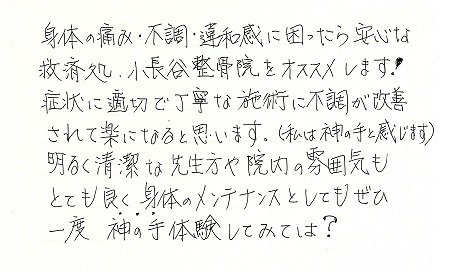 身体の痛み・不調・違和感に困ったら安心な
救済処、小長谷整骨院をオススメします!
症状に適切で丁寧な施術に不調が改善
されて楽になると思います。(私は神の手と感じます)
明るく清潔な先生方や院内の雰囲気も
とても良く身体のメンテナンスとしてもぜひ
一度 神の手体験してみては?